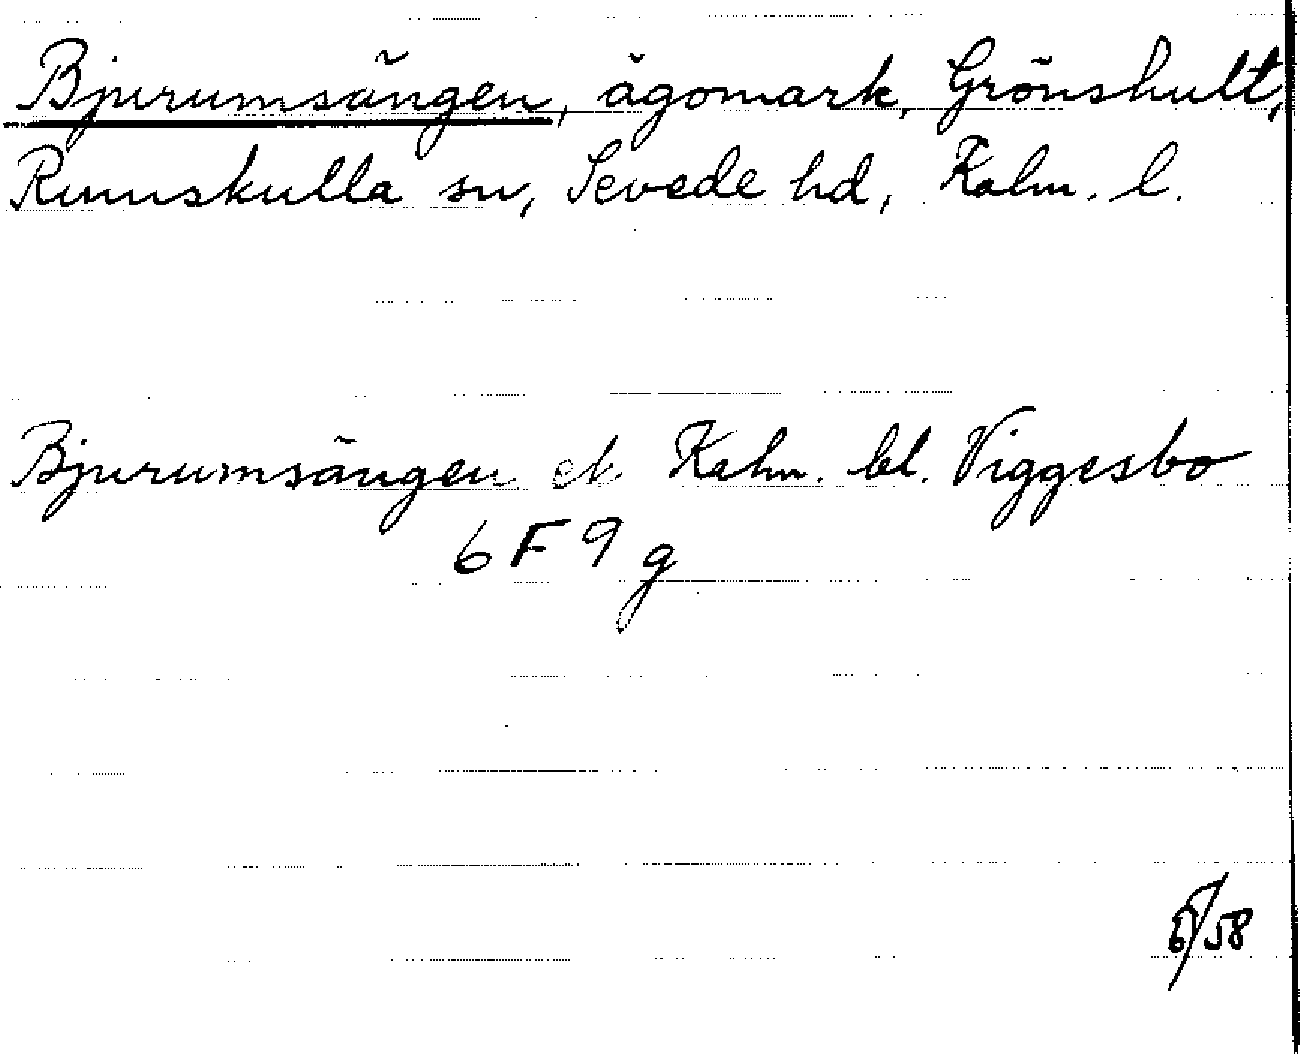 Bjurumsängen, ägomark, Grönshult,
Rumskulla sn, Sevede hd, Kalm. l.
Bjurumsängen ek Kalm. bl. Viggesbo
6 F 9 g
6/58